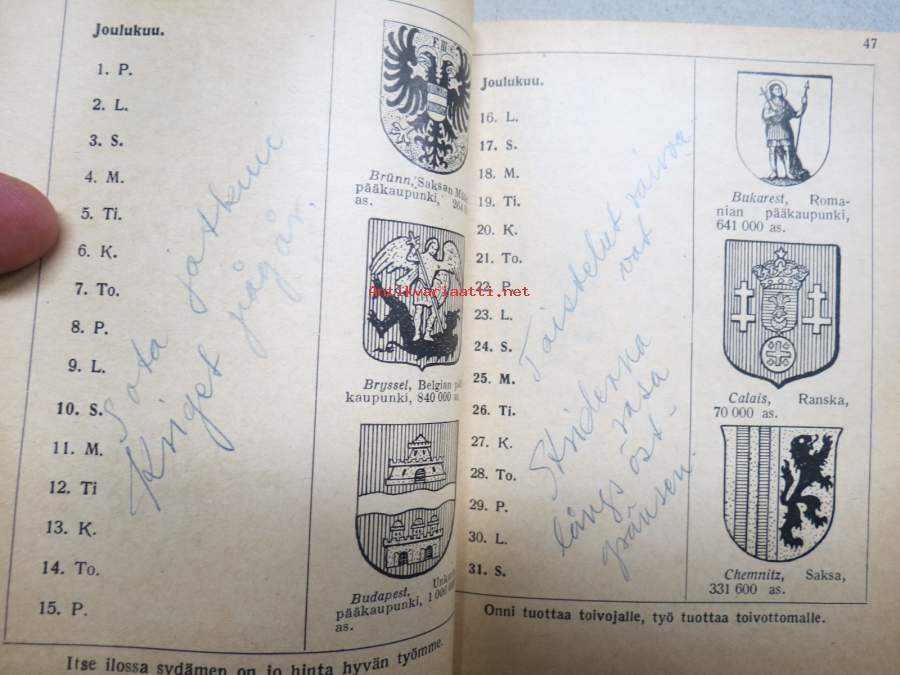 Joulukuu.
1. P.
2. L.
3. S.
4. M.
5. Ti.
6. K.
7. To.
8. P.
9. L.
10. S.
11. M.
12. Ti
13. K.
14. To.
15. P.
Sota jatkuu
Kriget pågår.
F III
Brünn, Saksan
pääkaupunki,
as.
Bryssel, Belgian
kaupunki, 840 000 as.
Budapest,
pääkaupunki,
as.
Itse ilossa sydämen on jo hinta hyvän työmme.
47
Joulukuu.
16. L.
17. S.
18. M.
19. Ti.
20. K.
21. To.
22. P.
23. L.
24. S.
25. M.
26. Ti.
27. K.
28. To.
29. P.
30. L.
31. S.
Taistelut raivoa-
vat
Striderna
rasa
längs öst-
gränsen.
Bukarest, Roma-
nian pääkaupunki,
641 000 as.
Calais, Ranska,
70 000 as.
Chemnitz, Saksa,
331 600 as.
Onni tuottaa toivojalle, työ tuottaa toivottomalle.
Antikvariaatti.net